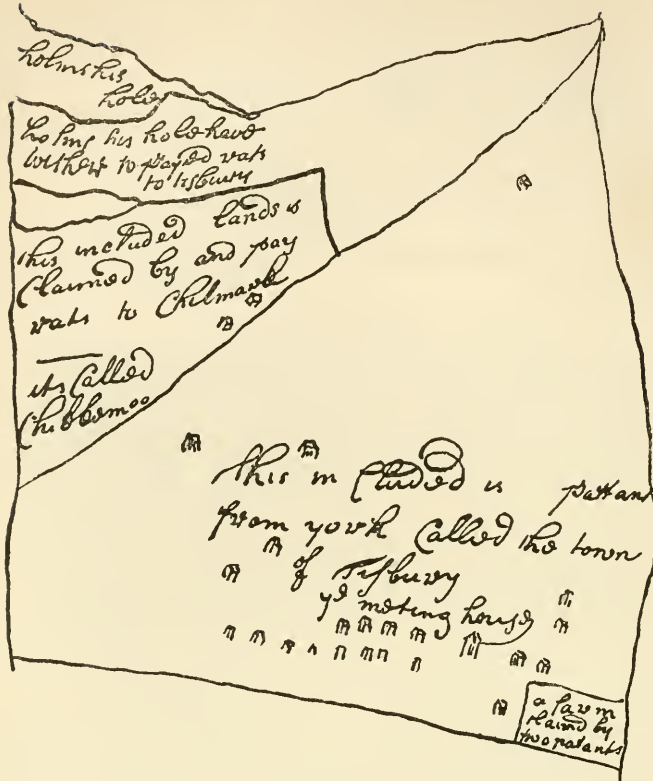 holms his
hole
holms his hole have
to payed rats
to tisbury
this included lands is
Claimed by and pay
rats to Chilmark
its Called
Chickemoo
this in Cluded is pattant
from york Called the town
of Tisbury
ye meting house
a farm
claimd by
two patants